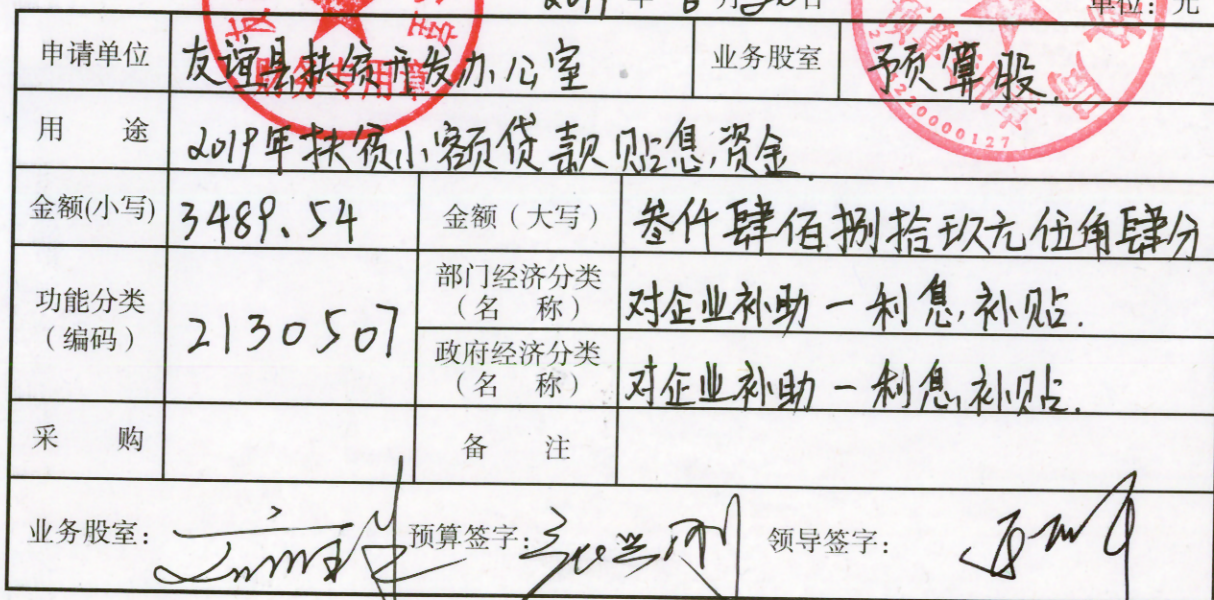 2019年6月20日 单位：元
申请单位 友谊县扶贫开发办公室 业务股室 预算股
用 途 2019年扶贫小额贷款贴息资金.
金额(小写) 3489.54 金额（大写） 叁仟肆佰捌拾玖元伍角肆分
功能分类（编码） 2130507 部门经济分类（名 称） 对企业补助一利息补贴.
政府经济分类（名 称） 对企业补助一利息补贴.
采 购 备 注
业务股室： 预算签字： 领导签字：
财务专用章
预算专用章
2200000127